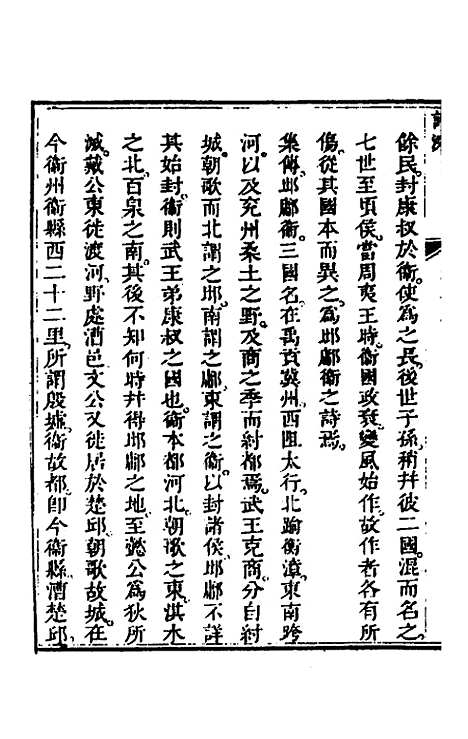 餘民封康叔於衞使爲之長後世子孫稍幷彼二國混而名之
七世至頃侯當周夷王時衞國政衰變風始作故作者各有所
傷從其國本而異之爲邶鄘衞之詩焉
集傳邶鄘衞三國名在禹貢冀州西阻太行北踰衡漳東南跨
河以及兗州桑土之野及商之季而紂都焉武王克商分自紂
城朝歌而北謂之邶南謂之鄘東謂之衞以封諸侯邶鄘不詳
其始封衞則武王弟康叔之國也衞本都河北朝歌之東淇水
之北百泉之南其後不知何時幷得邶鄘之地至懿公爲狄所
滅戴公東徙渡河野處漕邑文公又徙居於楚邱朝歌故城在
今衞州衞縣西二十二里所謂殷墟衞故都卽今衞縣漕楚邱